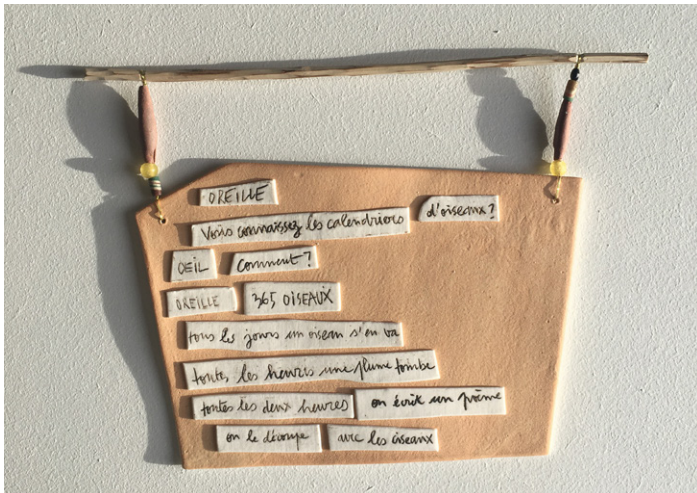 OREILLE
Vous connaissez les calendriers d'oiseaux?
OEIL comment?
OREILLE 365 OISEAUX
tous les jours un oiseau s'en va
toutes les heures une plume tombe
toutes les deux heures on écrit un poème
on le découpe avec les ciseaux